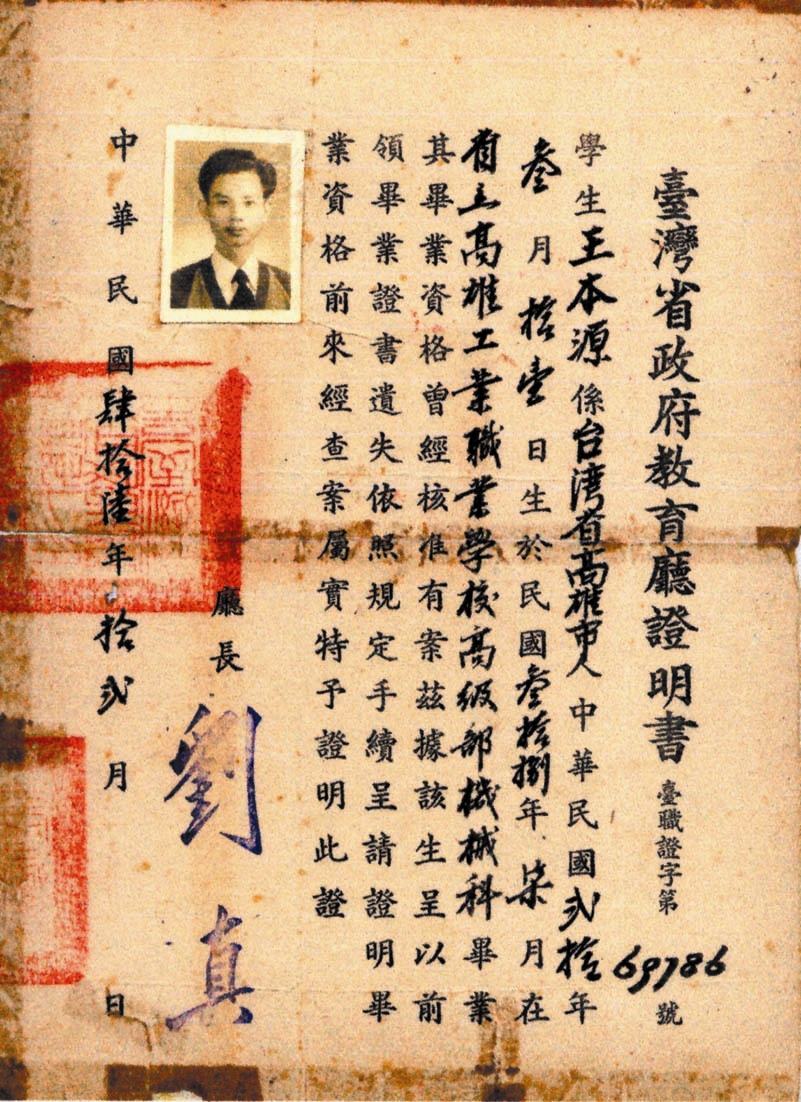 臺灣省政府教育廳證明書
臺職證字第69786號
學生王本源係台湾省高雄市人中華民國弍拾年
叁月拾壹日生於民國叁拾捌年柒月在
省立高雄工業職業学校高级部機械科畢業
其畢業資格曾經核准有案茲據該生呈以前
領畢業證書遺失依照規定手續呈請證明畢
業資格前來經查案屬實特予證明此證
廳長劉真
中華民國肆拾陸年拾弍月日